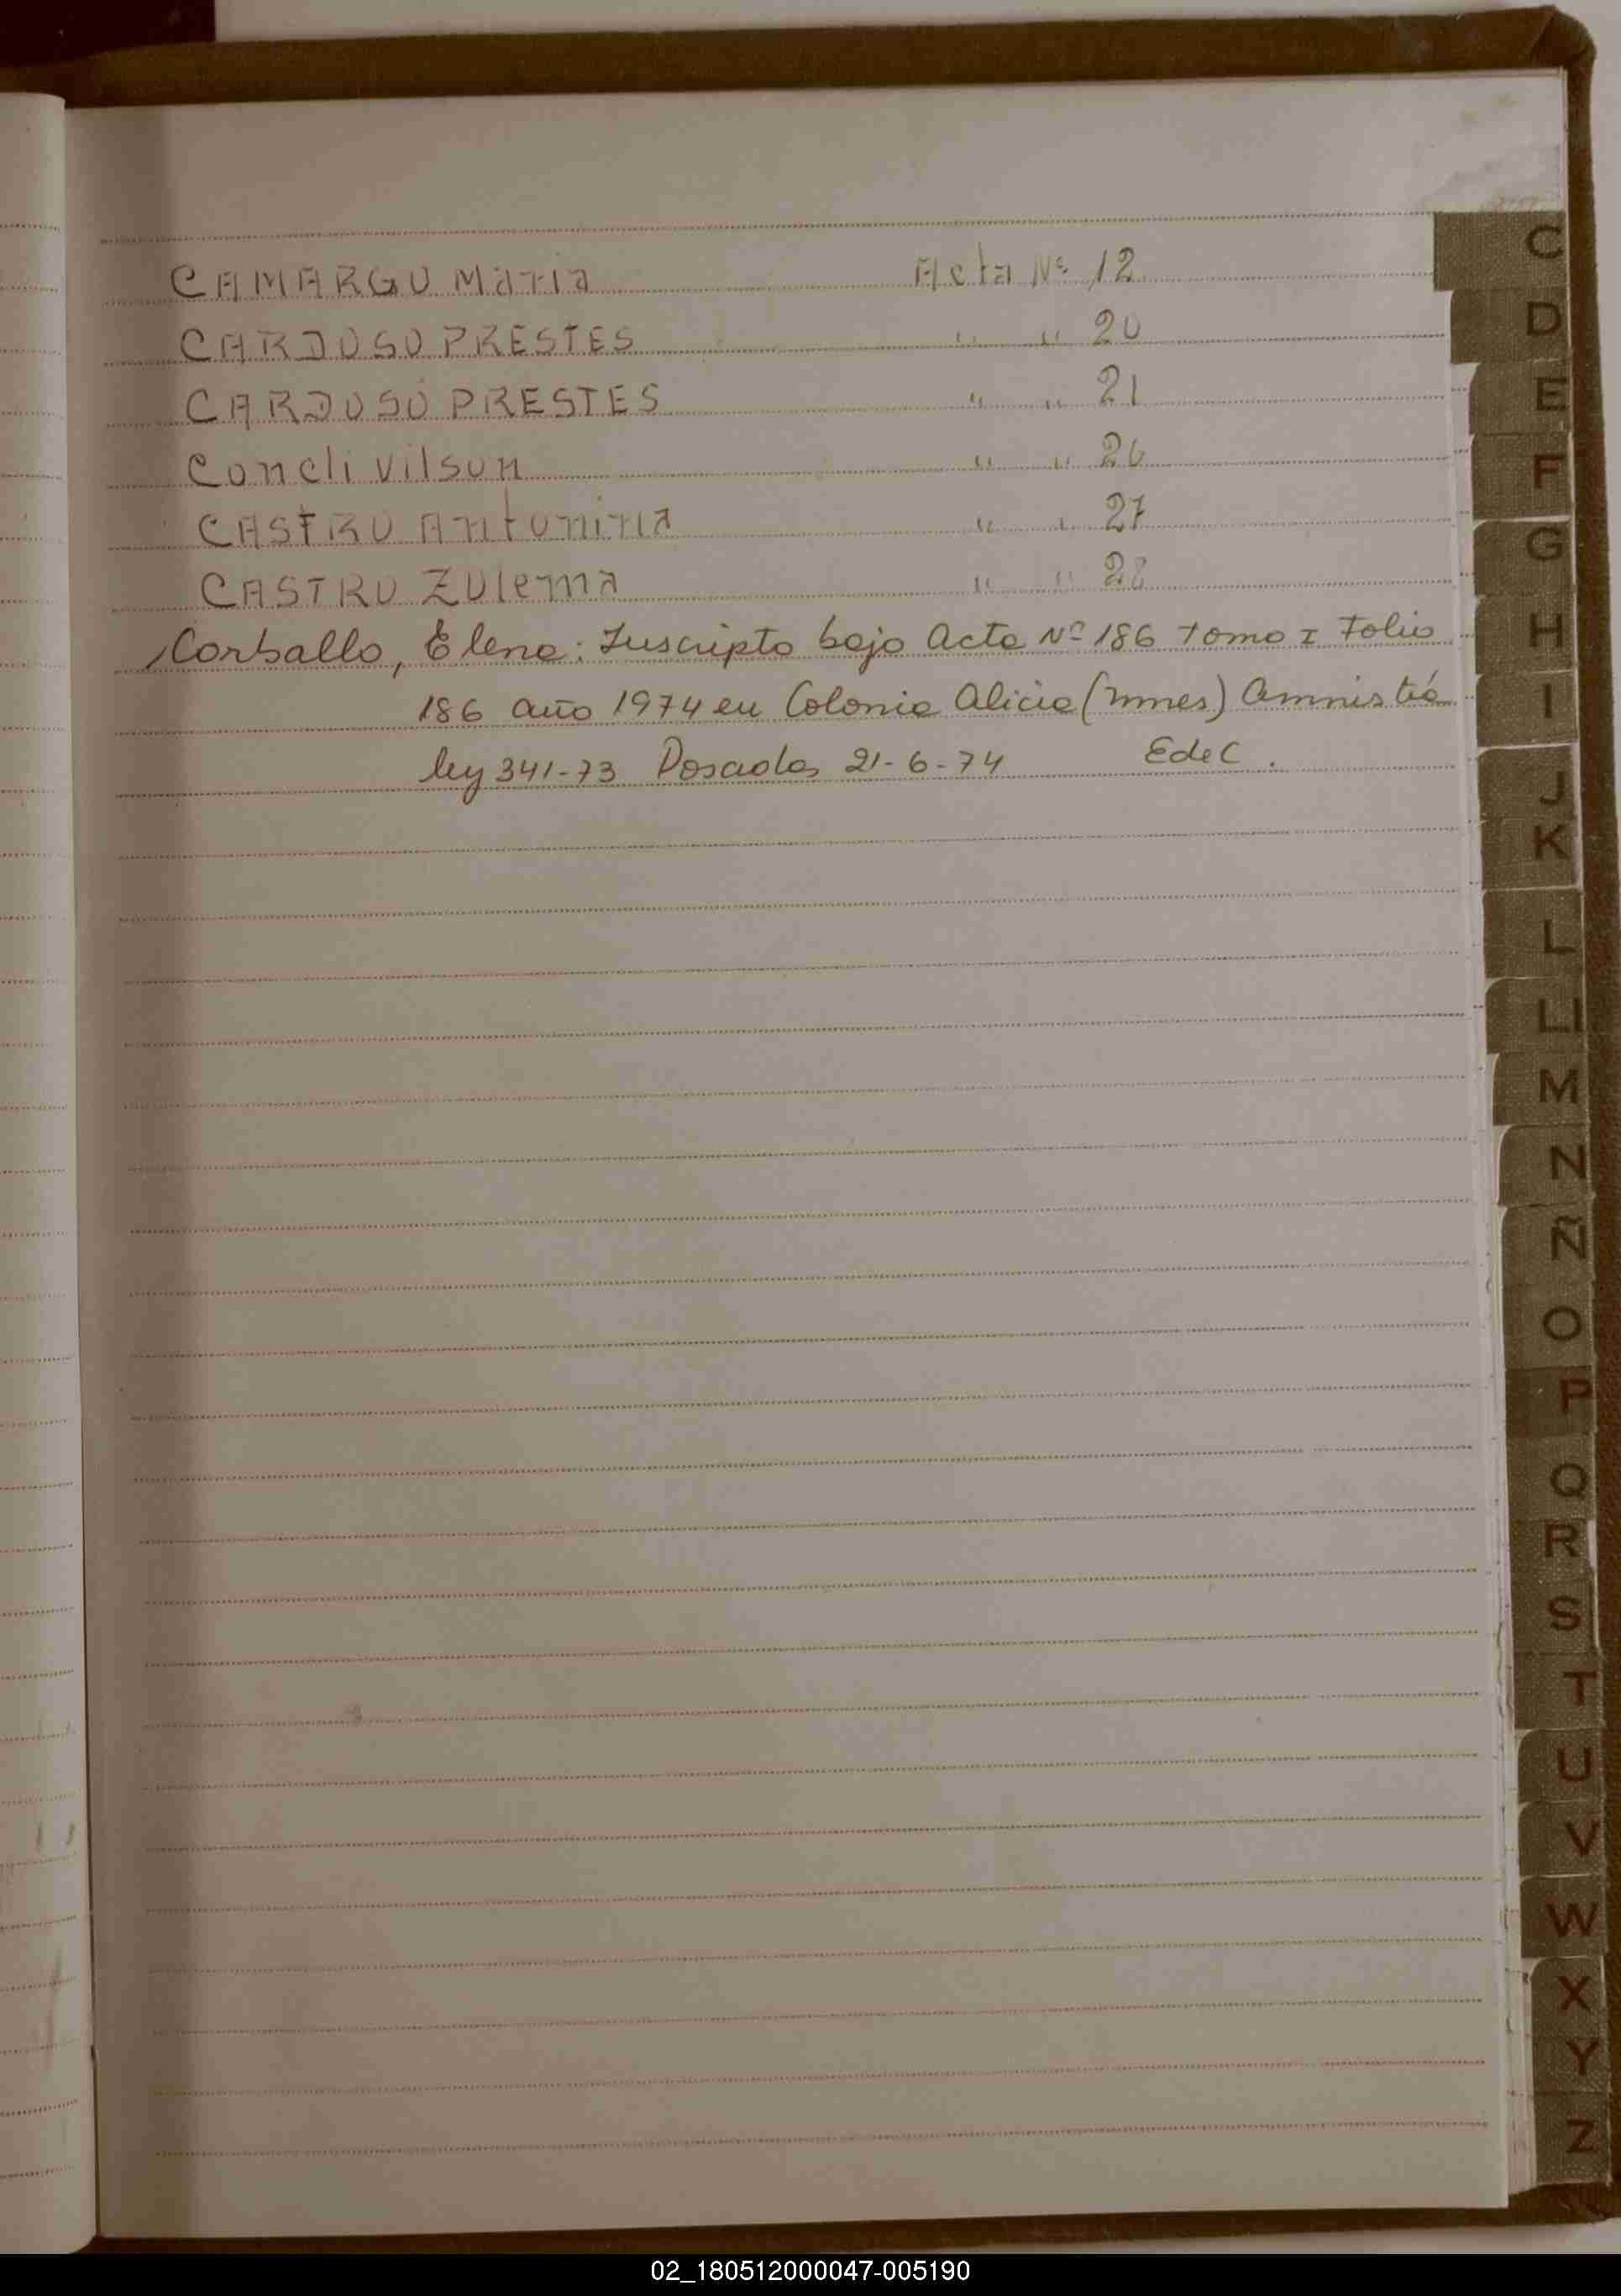 CAMARGO Maria Acta Nº 12
CARDOSO PRESTES " " 20
CARDOSO PRESTES " " 21
Concli Vilson " " 26
CASTRO Antonina " " 27
CASTRO Zulema " " 28
Corballo, Elena: Inscripta bajo Acta Nº 186 Tomo I Folio
186 año 1974 en Colonia Alicia (Mnes) Amnistía
ley 341-73 Posadas 21-6-74 EdeC.
C
D
E
F
G
H
I
J
K
L
LL
M
N
Ñ
O
P
Q
R
S
T
U
V
W
X
Y
Z
02_180512000047-005190